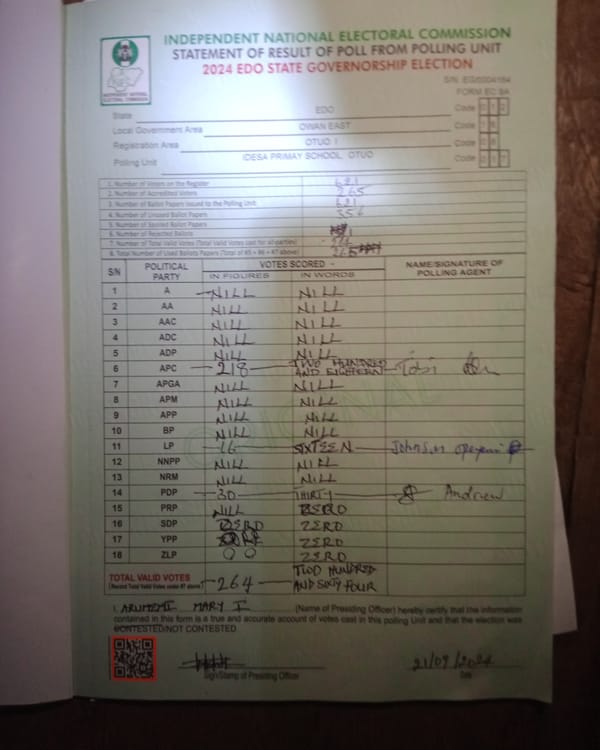 INDEPENDENT NATIONAL ELECTORAL COMMISSION
STATEMENT OF RESULT OF POLL FROM POLLING UNIT
2024 EDO STATE GOVERNORSHIP ELECTION
INDEPENDENT NATIONAL ELECTORAL COMMISSION
FORM EC 8A
State EDO Code 012
Local Government Area OWAN EAST Code
Registration Area OTUO I Code
Polling Unit IDESA PRIMAY SCHOOL, OTUO Code
1. Number of Voters on the Register 621
2. Number of Accredited Voters 265
3. Number of Ballot Papers Issued to the Polling Unit 621
4. Number of Unused Ballot Papers 356
5. Number of Spoiled Ballot Papers
6. Number of Rejected Ballots
7. Number of Total Valid Votes (Total Valid Votes cast for all parties)
8. Total Number of Used Ballots Papers (Total of #5 + #6 + #7 above)
S/N POLITICAL PARTY VOTES SCORED - IN FIGURES IN WORDS NAME/SIGNATURE OF POLLING AGENT
1 A NILL NILL
2 AA NILL NILL
3 AAC NILL NILL
4 ADC NILL NILL
5 ADP NILL NILL
6 APC 218 TWO HUNDRED AND EIGHTEEN Tobi
7 APGA NILL NILL
8 APM NILL NILL
9 APP NILL NILL
10 BP NILL NILL
11 LP 16 SIXTEEN Johnson
12 NNPP NILL NILL
13 NRM NILL NILL
14 PDP 30 THIRTY Andrew
15 PRP NILL ZERO
16 SDP ZERO ZERO
17 YPP ZERO
18 ZLP 00 ZERO
TOTAL VALID VOTES 264 TWO HUNDRED AND SIXTY FOUR
(Record Total Valid Votes under #7 above)
ORIGINAL
I, ARUMEMI MARY I (Name of Presiding Officer) hereby certify that the information
contained in this form is a true and accurate account of votes cast in this polling Unit and that the election was
CONTESTED/NOT CONTESTED
21/09/2024
Sign/Stamp of Presiding Officer Date